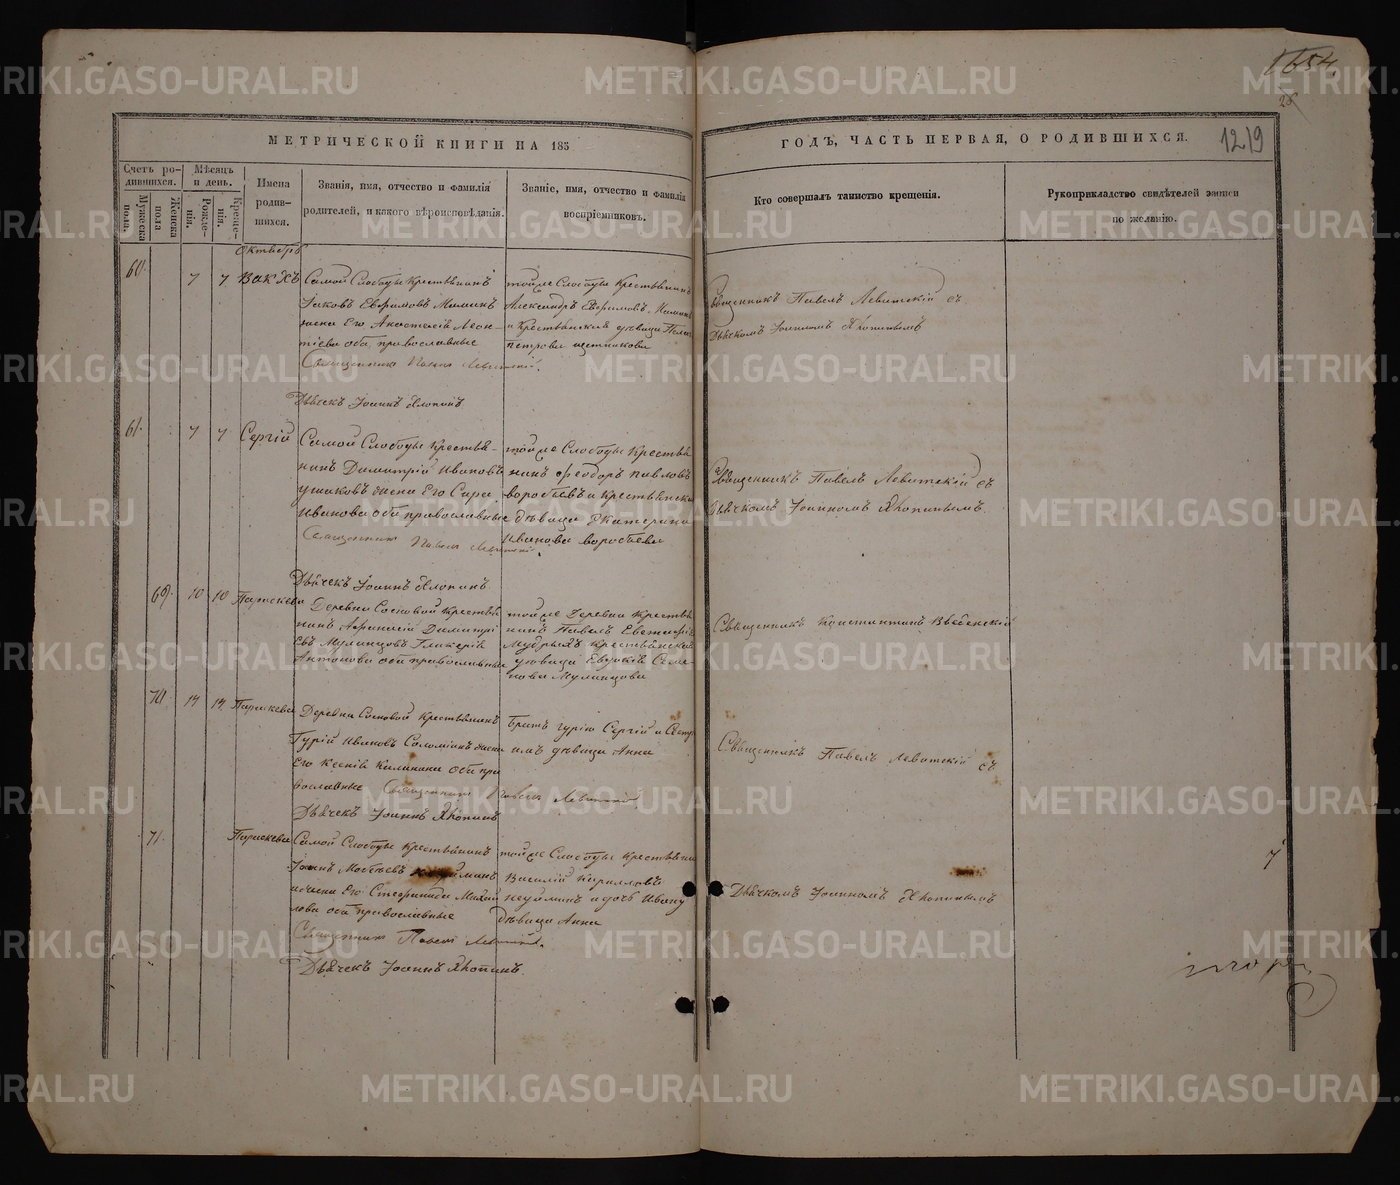 1654
26
1219
МЕТРИЧЕСКОЙ КНИГИ НА 185
ГОДЪ, ЧАСТЬ ПЕРВАЯ, О РОДИВШИХСЯ.
Счетъ родившихся.
Мужеска пола.
Женска пола
Мѣсяцъ и день.
Рожденія.
Крещенія.
Имена родившихся.
Званія, имя, отчество и фамилія
родителей, и какого вѣроисповѣданія.
Званіе, имя, отчество и фамилія
воспріемниковъ.
Кто совершалъ таинство крещенія.
Рукоприкладство свидѣтелей записи
по желанію.
Октябрь
60. 7 7 Вакхъ
Самой Слободы Крестьянинъ
Іаковъ Евфимовъ
жена Его Анастасія Леон-
тіева оба православные
Священникъ Павелъ Левитскій.
Дьячекъ Іоаннъ Хлопинъ
тойже Слободы Крестьянинъ
Александръ Евфимовъ
и Крестьянская дѣвица
петрова
Священникъ Павелъ Левитскій съ
Дьячкомъ Іоанномъ Хлопинымъ
61. 7 7 Сергій
Самой Слободы Крестья-
нинъ Димитрій Ивановъ
ушаковъ жена Его Сара
Иванова оба православные
Священникъ Павелъ Левитскій.
Дьячекъ Іоаннъ Хлопинъ
тойже Слободы Крестья
нинъ Феодоръ павловъ
воробьевъ и крестьянска
дѣвица Екатерина
Иванова воробьева
Священникъ Павелъ Левитскій съ
Дьячкомъ Іоанномъ Хлопинымъ.
69. 10 10 Параскева
Деревни Сосновой Крестья
нинъ Афанасій Димитрі
евъ Мулинцовъ Гликерія
Антонова оба православные
тойже Деревни Крестья
нинъ Павелъ
Мудрыхъ Крестьянская
дѣвица Евдокія Семе-
нова Мулинцова
Священникъ Константинъ Введенскій
70. 14 14 Параскева
Деревни Сосновой Крестьянинъ
Гурій Ивановъ жена
Его Ксенія оба пра
вославные Священникъ Павелъ Левитскій.
Дьячекъ Іоаннъ Хлопинъ
Братъ Гурію Сергій и Сестр
имъ дѣвица Анна
Священникъ Павелъ Левитскій съ
71. Параскева
Самой Слободы Крестьянинъ
Іоаннъ
и жена Его Стефанида Михай
лова оба православные
Священникъ Павелъ Левитскій.
Дьячекъ Іоаннъ Хлопинъ.
тойже Слободы Крестьяни
Василій Кирилловъ
и дочь Ивану
дѣвица Анна
Дьячкомъ Іоанномъ Хлопинымъ
METRIKI.GASO-URAL.RU